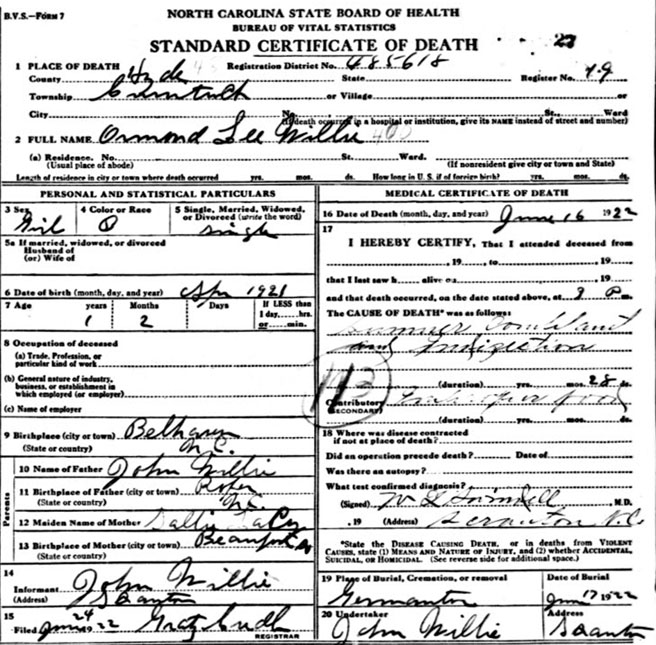 B.V.S.—FORM 7
NORTH CAROLINA STATE BOARD OF HEALTH
BUREAU OF VITAL STATISTICS
STANDARD CERTIFICATE OF DEATH 23
1 PLACE OF DEATH Registration District No. 485618
County Hyde State Register No. 79
Township or Village or
City No. St. Ward
(If death occurred in a hospital or institution, give its NAME instead of street and number)
2 FULL NAME Ormond Lee Willie
(a) Residence. No. St. Ward.
(Usual place of abode) (If nonresident give city or town and State)
Length of residence in city or town where death occurred yrs. mos. ds. How long in U.S. if of foreign birth? yrs. mos. ds.
PERSONAL AND STATISTICAL PARTICULARS
3 Sex 4 Color or Race 5 Single, Married, Widowed, or Divorced (write the word)
Girl single
5a If married, widowed, or divorced
Husband of
(or) Wife of
6 Date of birth (month, day, and year) Apr 1921
7 Age years Months Days If LESS than
1 day,.....hrs.
or.....min.
1 2
8 Occupation of deceased
(a) Trade, Profession, or
particular kind of work
(b) General nature of industry,
business, or establishment in
which employed (or employer)
(c) Name of employer
9 Birthplace (city or town) Belhaven
(State or country) N.C.
Parents
10 Name of Father John Willie
11 Birthplace of Father (city or town)
(State or country) N.C.
12 Maiden Name of Mother Sallie
13 Birthplace of Mother (city or town) Beaufort
14
Informant John Willie
(Address) Scranton
15
Filed June 24 1922
REGISTRAR
MEDICAL CERTIFICATE OF DEATH
16 Date of Death (month, day, and year) June 16 1922
17
I HEREBY CERTIFY, That I attended deceased from
, 19 , to , 19
that I last saw h alive on , 19
and that death occurred, on the date stated above, at 3 Pm.
The CAUSE OF DEATH* was as follows:
Summer Complaint
and Indigestion
113
(duration) yrs. mos. 28 ds.
Contributory food
(SECONDARY)
(duration) yrs. mos. ds.
18 Where was disease contracted
if not at place of death?
Did an operation precede death? Date of
Was there an autopsy?
What test confirmed diagnosis?
(Signed) M.D.
, 19 (Address) Scranton N.C.
*State the DISEASE CAUSING DEATH, or in deaths from VIOLENT
CAUSES, state (1) MEANS AND NATURE OF INJURY, and (2) whether ACCIDENTAL,
SUICIDAL, OR HOMICIDAL. (See reverse side for additional space.)
19 Place of Burial, Cremation, or removal Date of Burial
Germanton June 17 1922
20 Undertaker Address
John Willie Scranton